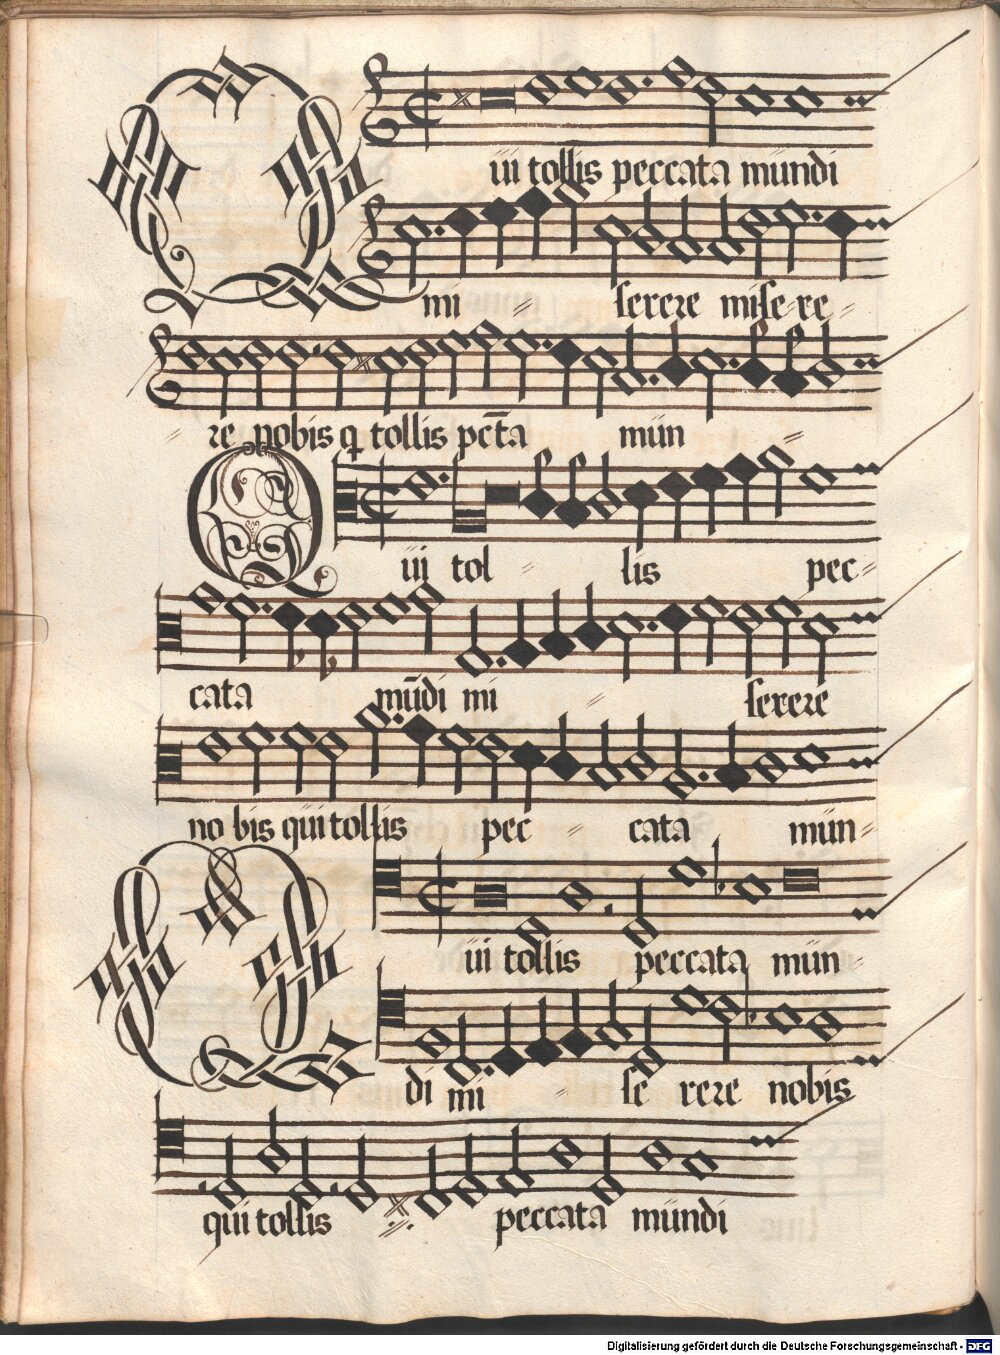 Qui tollis peccata mundi
mi serere mise re
re nobis q tollis pcta mun
Qui tol lis pec
cata mūdi mi serere
no bis qui tol lis pec cata mun
Qui tollis peccata mun
di mi se rere nobis
qui tollis peccata mundi
Digitalisierung gefördert durch die Deutsche Forschungsgemeinschaft - DFG